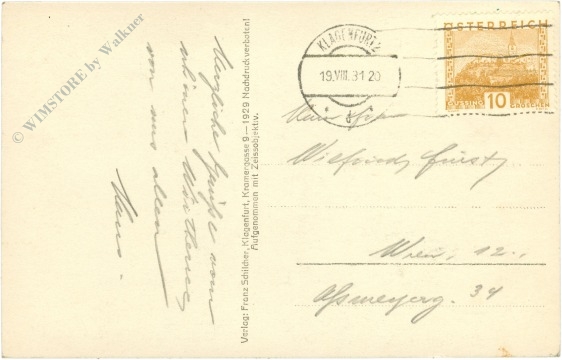 © WIMSTORE by Walkner
Herzliche Grüße vom
schönen Wörthersee
von uns allen
Hans.
Verlag: Franz Schilcher, Klagenfurt, Kramergasse 9 — 1929 Nachdruck verboten!
Aufgenommen mit Zeissobjektiv.
KLAGENFURT 2
19.VIII.31 20
ÖSTERREICH
GÜSSING 10 GROSCHEN
Wilfried Fürst
Wien, 12.,
Aßmayerg. 34